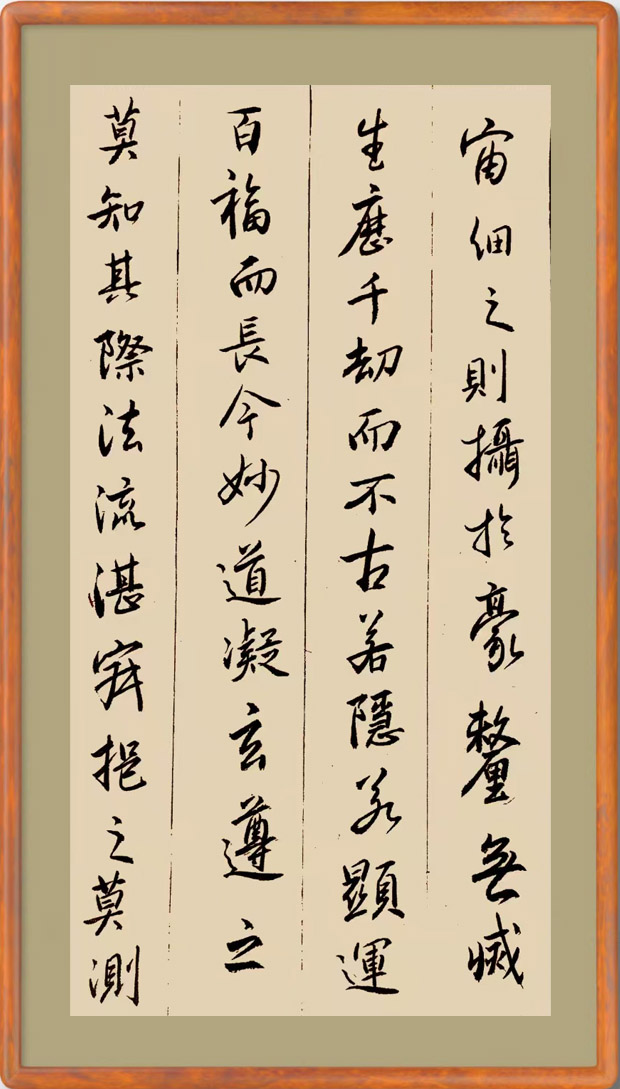 宙細之則攝於豪釐無滅
生歷千劫而不古若隱若顯運
百福而長今妙道凝玄遵之
莫知其際法流湛寂挹之莫測